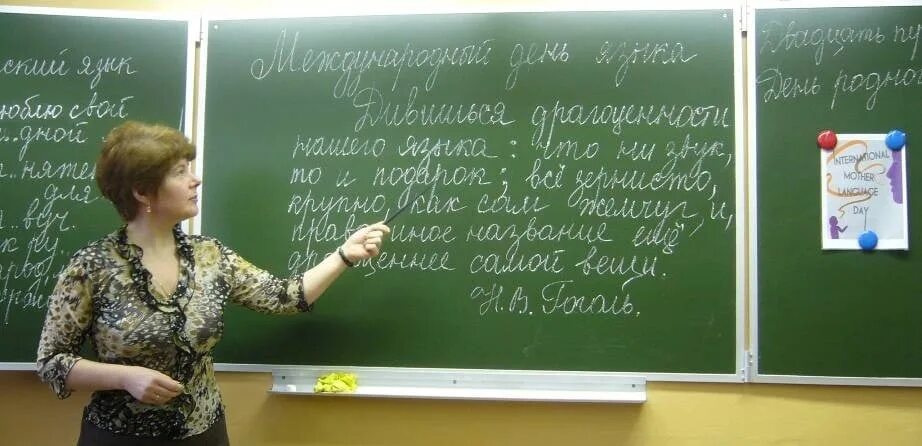 ский язык
люблю свой
е..дной
для
Международный день языка
Дивишься драгоценности
нашего языка: что ни звук,
то и подарок; всё зернисто,
крупно, как сам жемчуг, и,
название ещё
самой вещи.
Н.В. Гоголь.
Двадцать
День родно
INTERNATIONAL
MOTHER
LANGUAGE
DAY